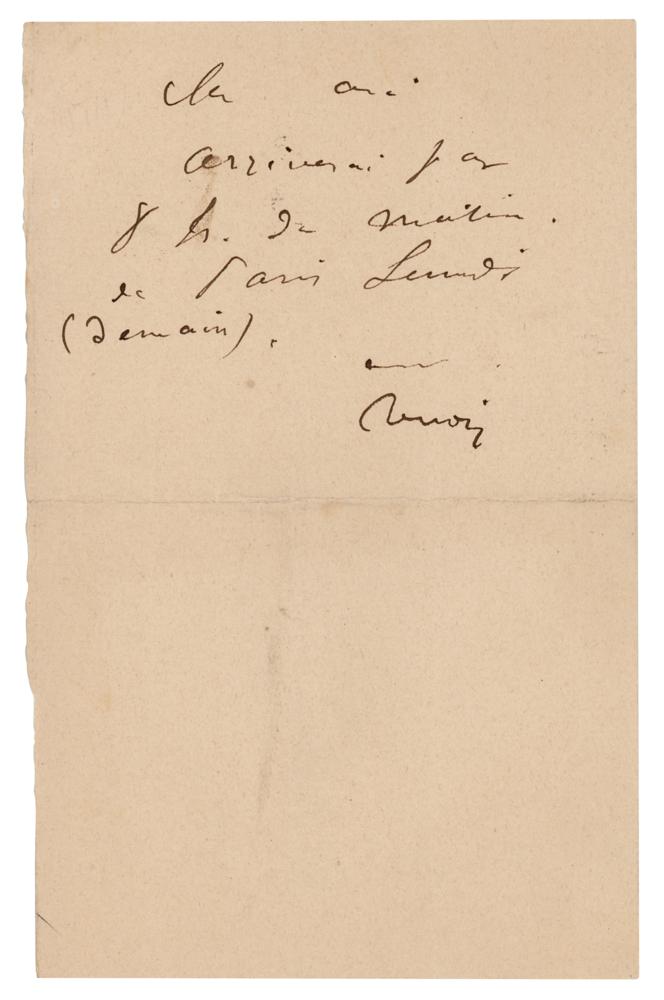 Cher ami
arriverai par
8 h. du matin.
de Paris Lundi
(Demain).
ami
Renoir